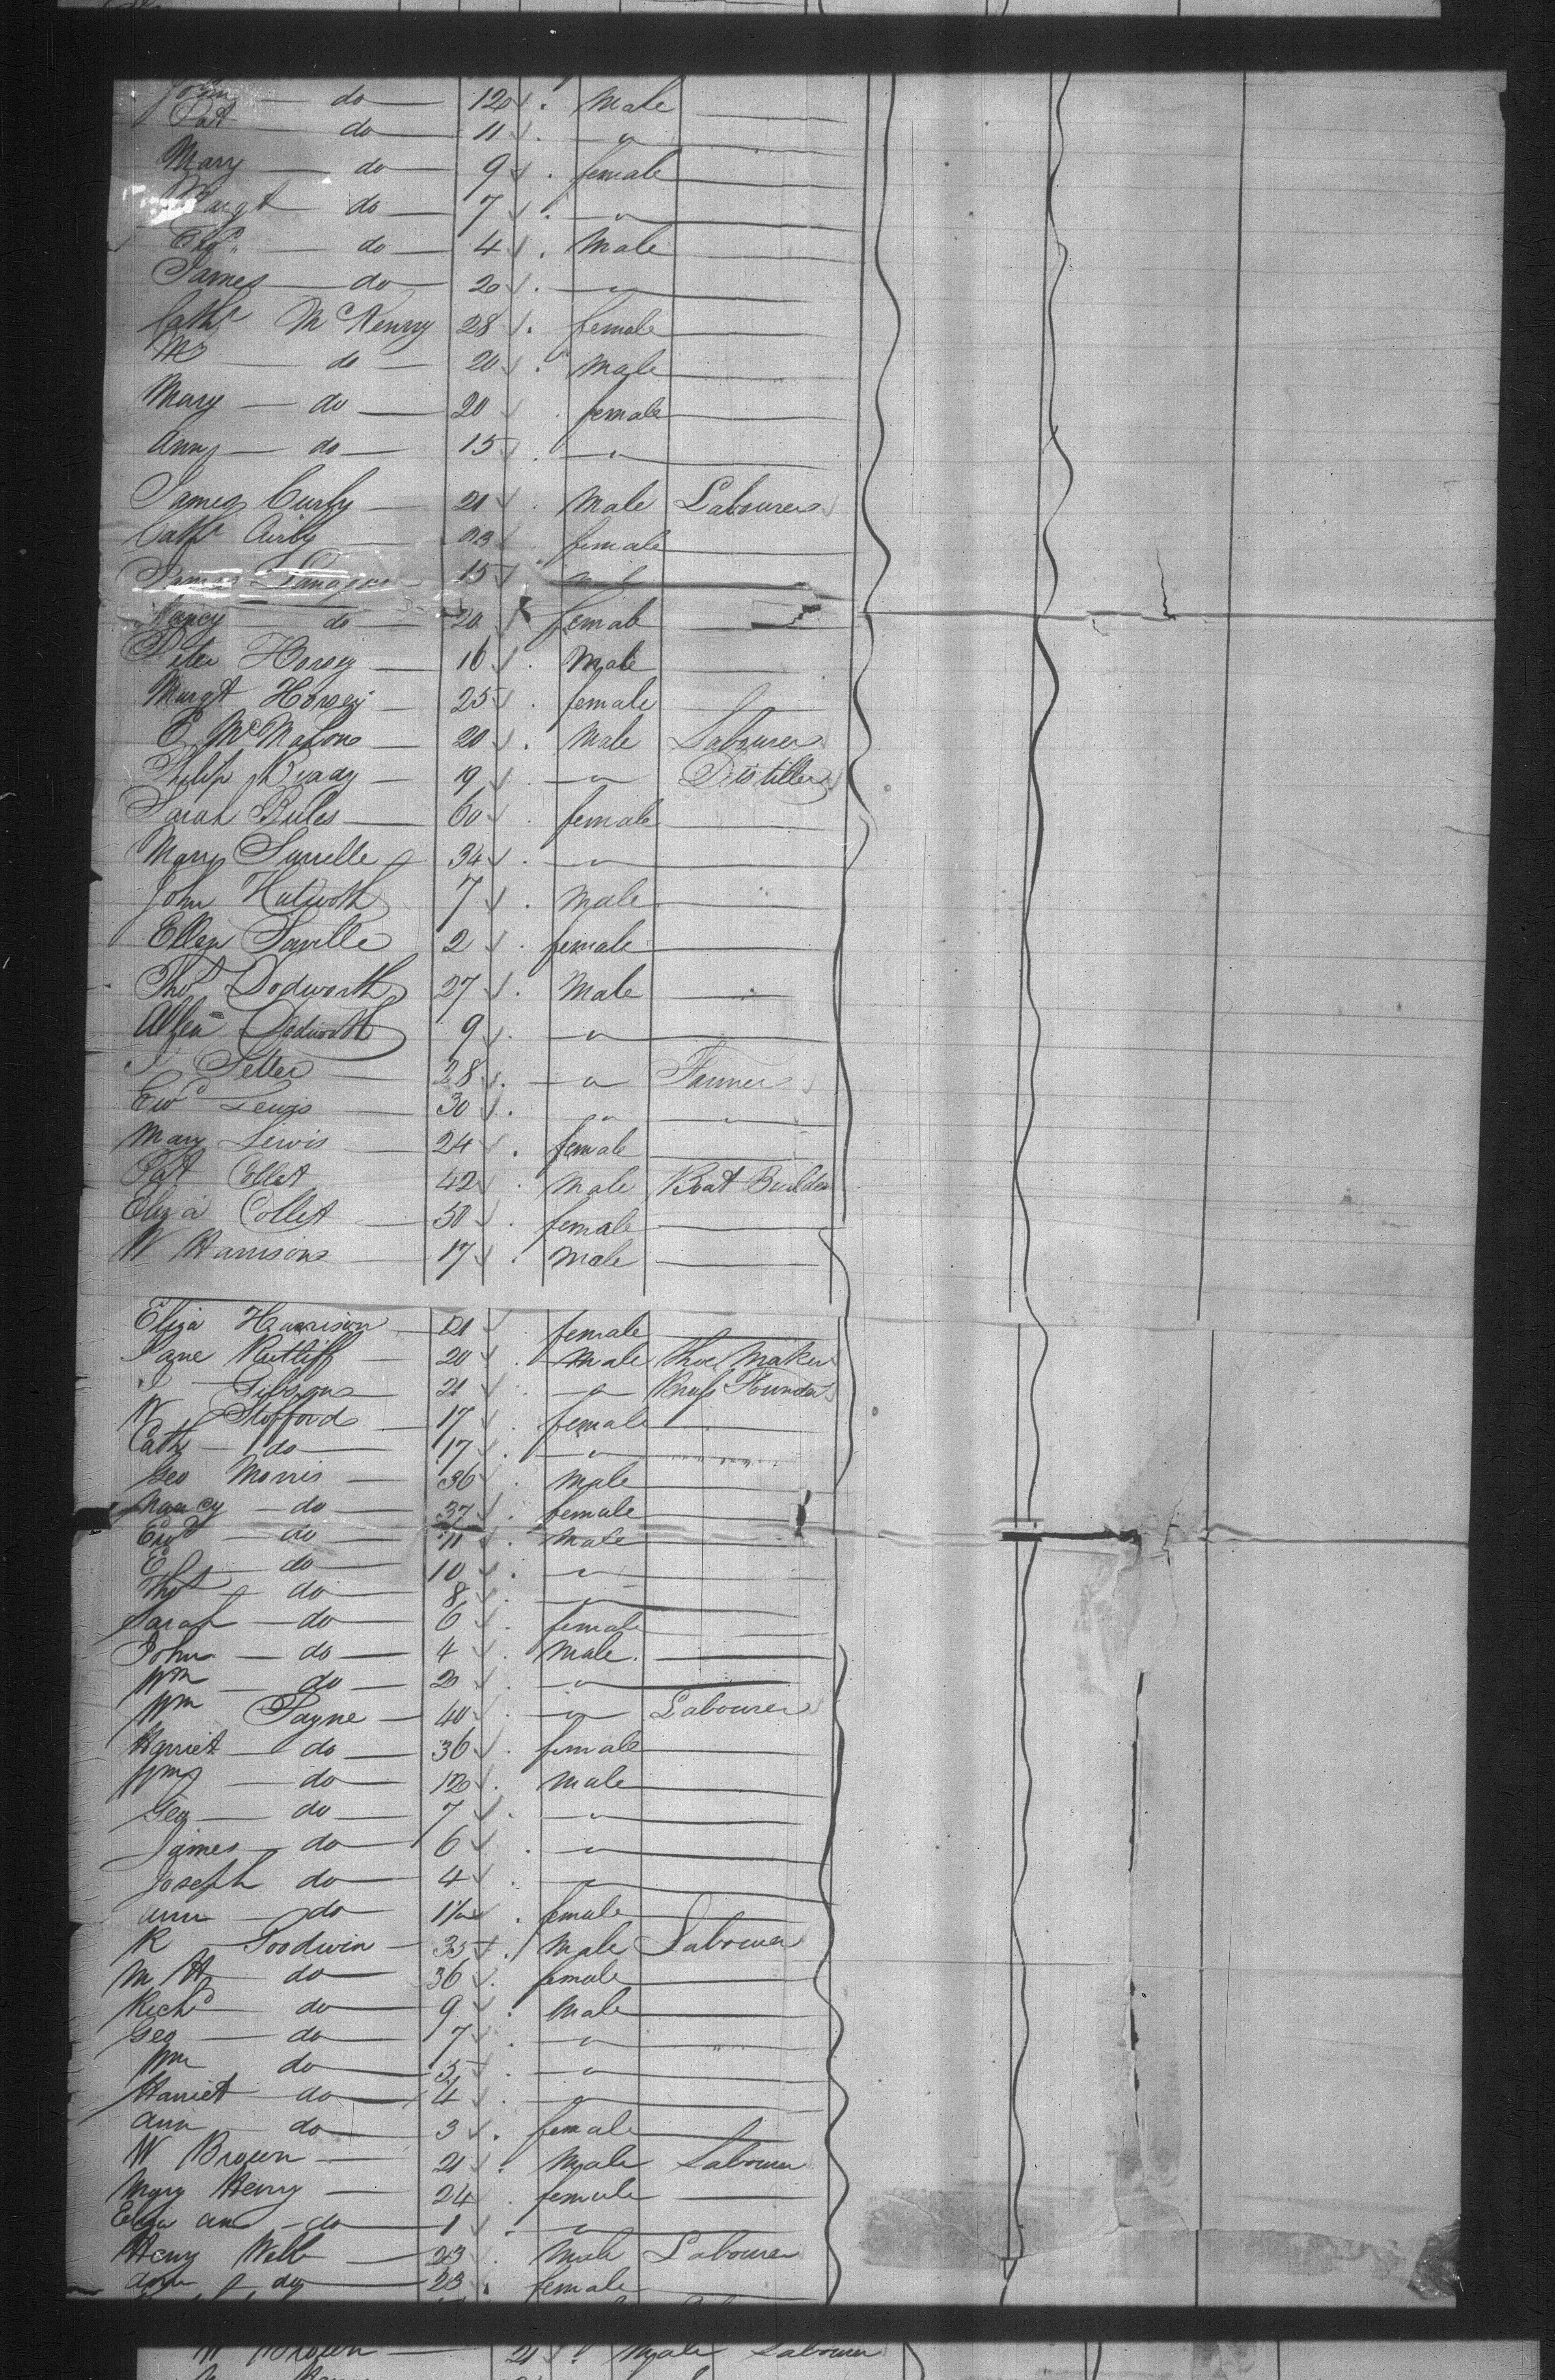 John — do — 12 Male
Pat — do — 11 "
Mary — do — 9 female
Margt do — 7 "
do — 4 Male
James — do — 20 "
Cathe McHenry 28 female
do — 20 male
Mary — do — 20 female
Ann — do — 15 "
James Curly — 21 Male Labourer
Cathe 23 female
James 15 "
Nancy do 20 female
Peter Horsey — 16 Male
Margt Horsey — 25 female
McMahon — 20 Male Labourer
Philip Brady — 19 " Distiller
Sarah Biles — 60 female
Mary 34 "
John 7 Male
Ellen Saville 2 female
Thos Dodworth 27 Male
Dodworth 9 "
28 " Farmer
Ewd Lewis 30 " "
Mary Lewis 24 female
Pat Collet 42 Male Boat Builder
Eliza Collet 50 female
W Harrison 17 Male
Eliza Harrison 21 female
Jane Rutliff 20 Male Shoe Maker
Gibson 21 " Brass Founder
W Stofford 17 female
Cath — do — 17 "
Geo Morris — 36 Male
Nancy — do — 37 female
Ewd — do — 11 Male
do — 10 "
Thos — do — 8 "
Sarah — do — 6 female
John — do — 4 Male
Wm — do — 20 "
Wm Payne — 40 " Labourer
Harriet — do — 36 female
Wm — do — 12 Male
Geo — do — 7 "
James — do — 6 "
Joseph do — 4 "
Ann — do female
R Goodwin — 35 Male Labourer
M A — do — 36 female
Richd — do — 9 Male
Geo — do — 7 "
Wm do — 5 "
Harriet — do — 4 "
Ann — do — 3 female
W Brown — 21 Male Labourer
Mary Henry — 24 female
Eliza Ann — do — 1 "
Henry Webb — 23 Male Labourer
Ann do — 23 female
W Brown — 21 Male Labourer